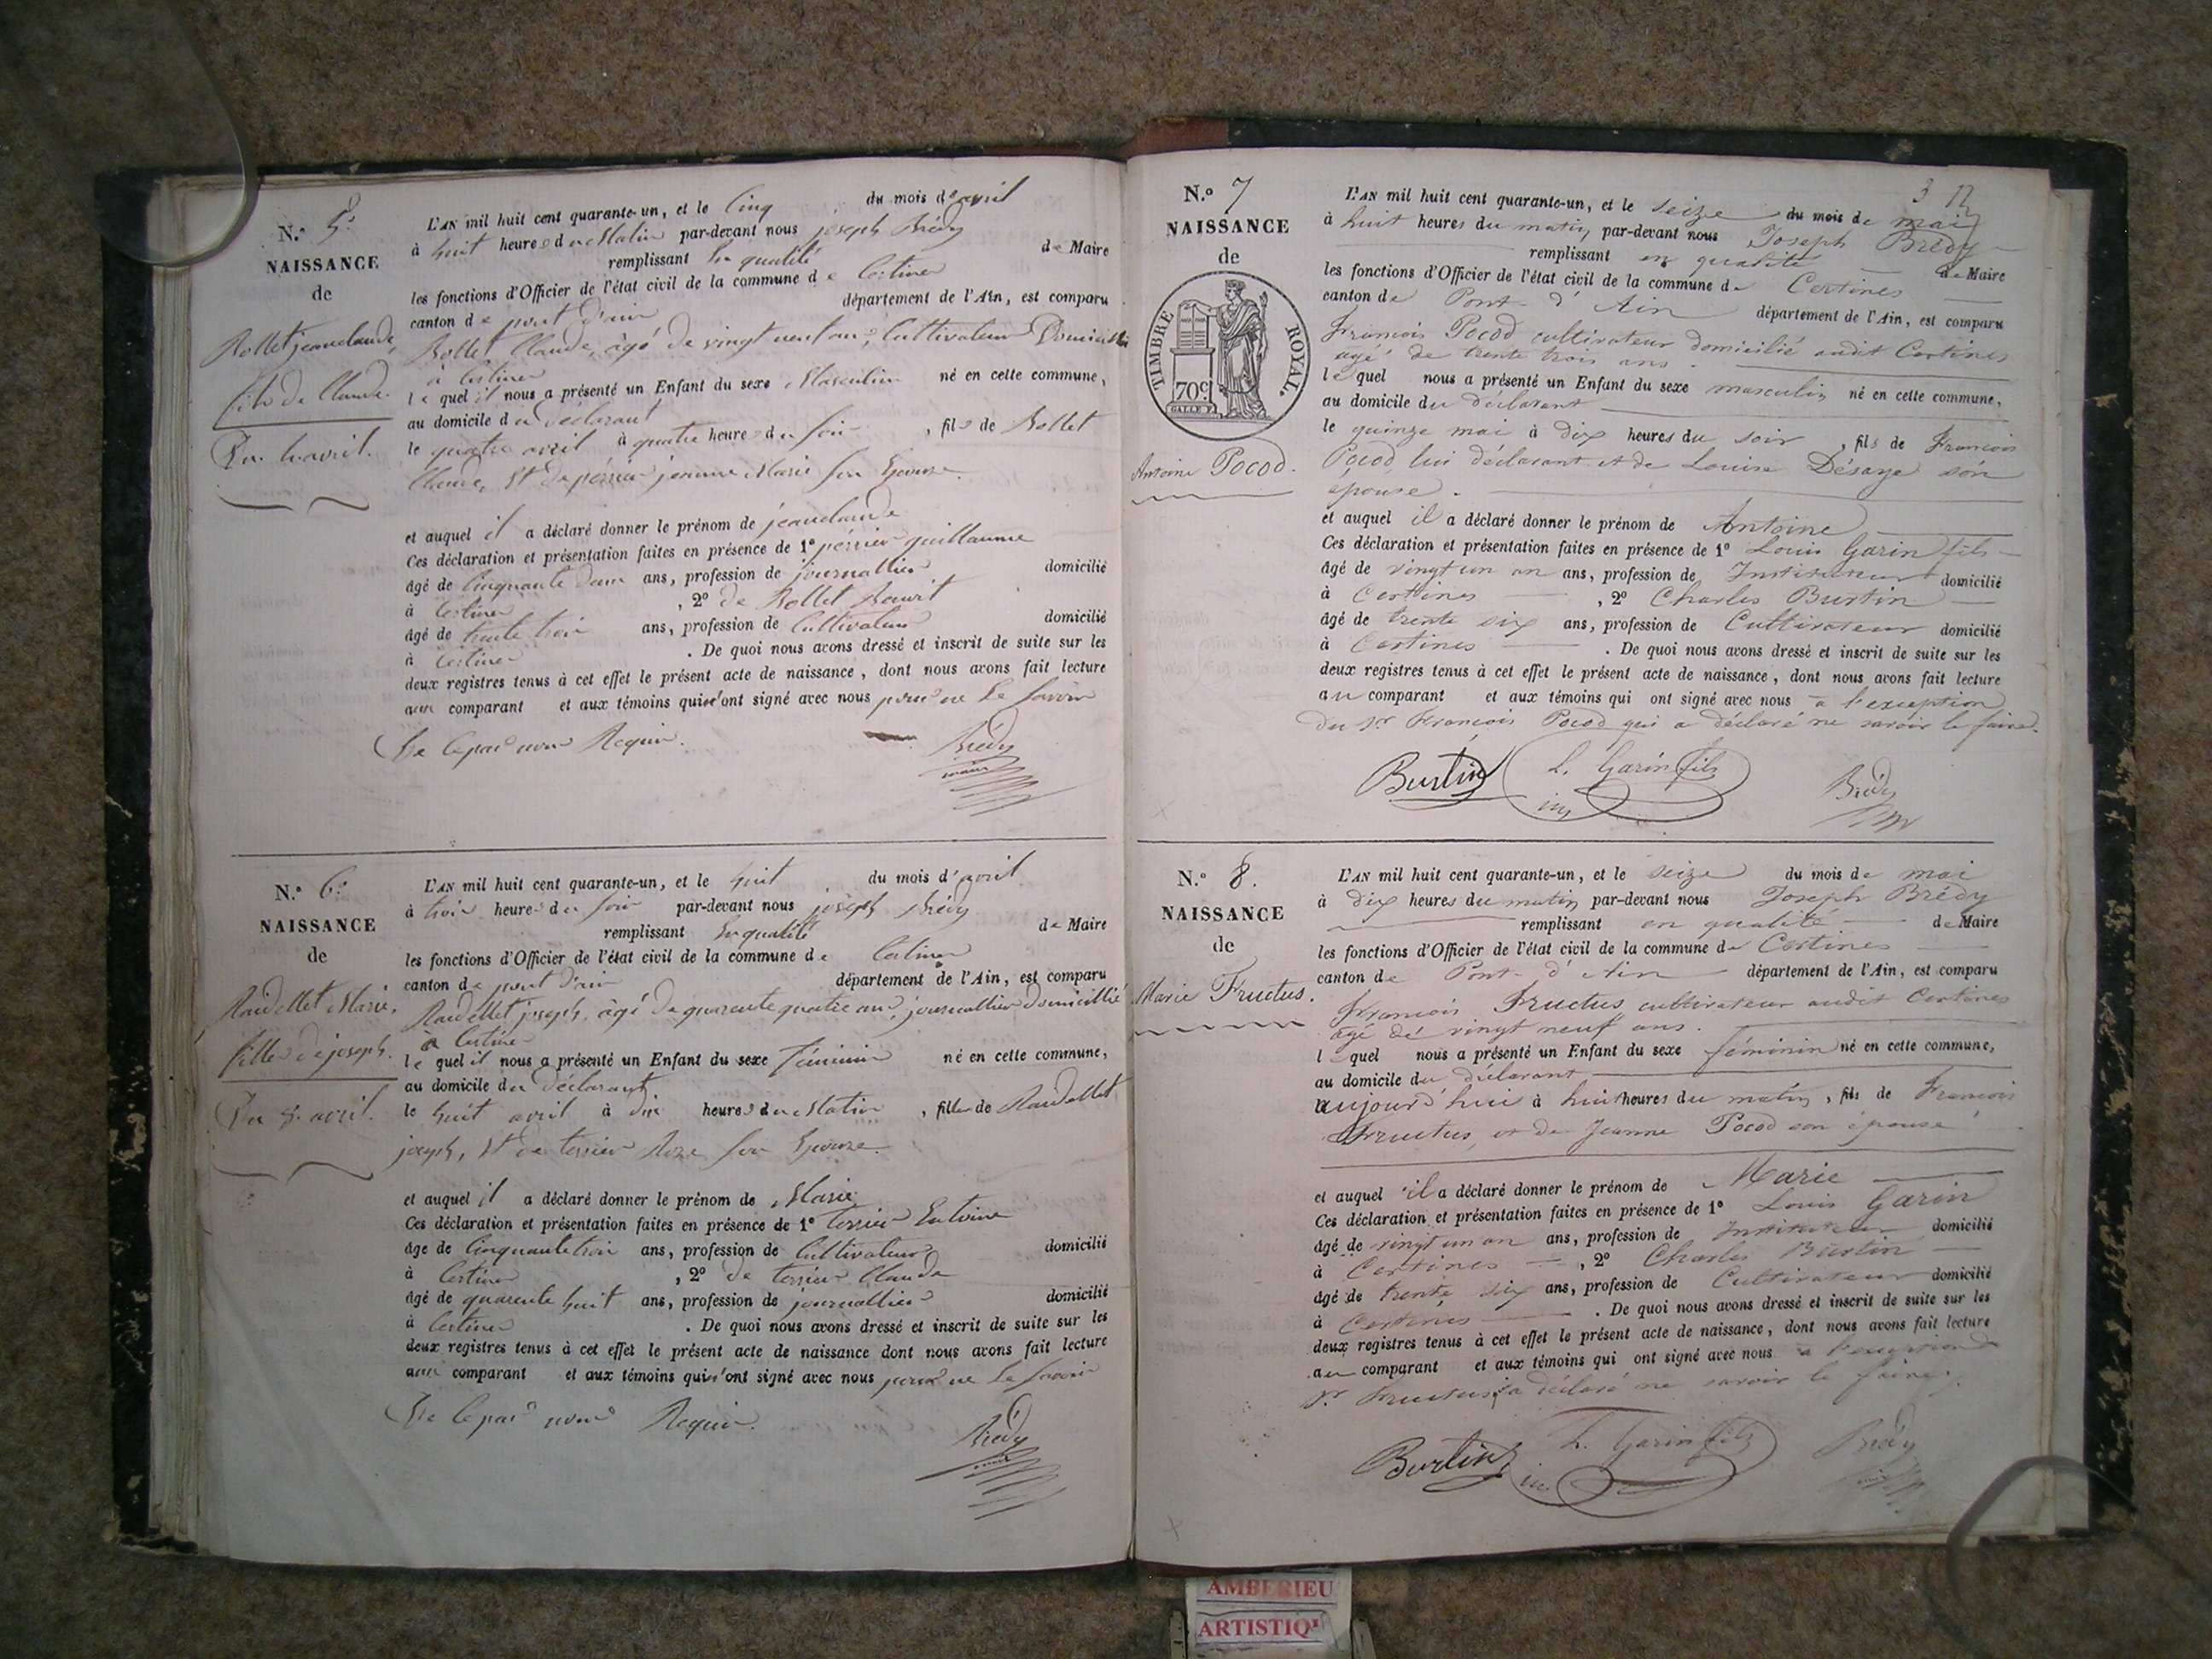 N.º 5.
NAISSANCE
de
Rollet jeanclaude,
fils de Claude.
Du 4 avril.
L'AN mil huit cent quarante-un, et le Cinq du mois d'avril
à huit heures du Matin par-devant nous joseph Brédy
remplissant En qualité de Maire
les fonctions d'Officier de l'état civil de la commune de Certines
canton de pont d'ain département de l'Ain, est comparu
Rollet Claude, âgé de vingt neuf ans, Cultivateur Domicillié
à Certines
le quel il nous a présenté un Enfant du sexe Masculin né en cette commune,
au domicile du déclarant
le quatre avril à quatre heures du soir, fils de Rollet
Claude, Et de périer jeanne Marie son Epouse.
et auquel il a déclaré donner le prénom de jeanclaude
Ces déclaration et présentation faites en présence de 1º périer guillaume
âgé de Cinquante deux ans, profession de journallier domicilié
à Certines, 2º de Rollet Benoit
âgé de trente trois ans, profession de Cultivateur domicilié
à Certines. De quoi nous avons dressé et inscrit de suite sur les
deux registres tenus à cet effet le présent acte de naissance, dont nous avons fait lecture
aux comparant et aux témoins qui n'ont signé avec nous pour ne le savoir
De ce par nous Requis.
Brédy
maire
N.º 6.
NAISSANCE
de
Raudellet Marie,
fille de joseph.
Du 8 avril.
L'AN mil huit cent quarante-un, et le huit du mois d'avril
à trois heures du soir par-devant nous joseph Brédy
remplissant En qualité de Maire
les fonctions d'Officier de l'état civil de la commune de Certines
canton de pont d'ain département de l'Ain, est comparu
Raudellet joseph, âgé de quarente quatre ans, journallier domicillié
à Certines
le quel il nous a présenté un Enfant du sexe féminin né en cette commune,
au domicile du déclarant
le huit avril à dix heures du Matin, fille de Raudellet
joseph, Et de terrier Roze son Epouze.
et auquel il a déclaré donner le prénom de Marie
Ces déclaration et présentation faites en présence de 1º terrier Entoine
âge de Cinquante trois ans, profession de Cultivateur domicilié
à Certines, 2º de terrier Claude
âgé de quarente huit ans, profession de journallier domicilié
à Certines. De quoi nous avons dressé et inscrit de suite sur les
deux registres tenus à cet effet le présent acte de naissance dont nous avons fait lecture
aux comparant et aux témoins qui n'ont signé avec nous pour ne le savoir
De ce par nous Requis.
Brédy
3 12
N.º 7
NAISSANCE
de
TIMBRE ROYAL.
70 c
GALLE F.
Antoine Pocod.
L'AN mil huit cent quarante-un, et le seize du mois de mai
à huit heures du matin par-devant nous Joseph Brédy
remplissant en qualité de Maire
les fonctions d'Officier de l'état civil de la commune de Certines
canton de Pont-d'Ain département de l'Ain, est comparu
François Pocod cultivateur domicilié audit Certines
agé de trente trois ans.
le quel nous a présenté un Enfant du sexe masculin né en cette commune,
au domicile du déclarant
le quinze mai à dix heures du soir, fils de François
Pocod, lui déclarant et de Louise Désaye son
épouse.
et auquel il a déclaré donner le prénom de Antoine
Ces déclaration et présentation faites en présence de 1º Louis Garin fils
âgé de vingt un an ans, profession de Instituteur domicilié
à Certines, 2º Charles Burtin
âgé de trente six ans, profession de Cultivateur domicilié
à Certines. De quoi nous avons dressé et inscrit de suite sur les
deux registres tenus à cet effet le présent acte de naissance, dont nous avons fait lecture
au comparant et aux témoins qui ont signé avec nous à l'exception
du Sr François Pocod qui a déclaré ne savoir le faire.
Burtin L. Garin fils Brédy
N.º 8.
NAISSANCE
de
Marie Fructus.
L'AN mil huit cent quarante-un, et le seize du mois de mai
à dix heures du matin par-devant nous Joseph Brédy
remplissant en qualité de Maire
les fonctions d'Officier de l'état civil de la commune de Certines
canton de Pont-d'Ain département de l'Ain, est comparu
François Fructus cultivateur audit Certines
agé de vingt neuf ans.
le quel nous a présenté un Enfant du sexe féminin né en cette commune,
au domicile du déclarant
aujourd'hui à huit heures du matin, fils de François
Fructus, et de Jeanne Pocod son épouse
et auquel il a déclaré donner le prénom de Marie
Ces déclaration et présentation faites en présence de 1º Louis Garin
âgé de vingt un an ans, profession de Instituteur domicilié
à Certines, 2º Charles Burtin
âgé de trente six ans, profession de Cultivateur domicilié
à Certines. De quoi nous avons dressé et inscrit de suite sur les
deux registres tenus à cet effet le présent acte de naissance, dont nous avons fait lecture
au comparant et aux témoins qui ont signé avec nous à l'exception d
Sr Fructus a déclaré ne savoir le faire.
Burtin L. Garin fils Brédy
AMBERIEU
ARTISTIQ